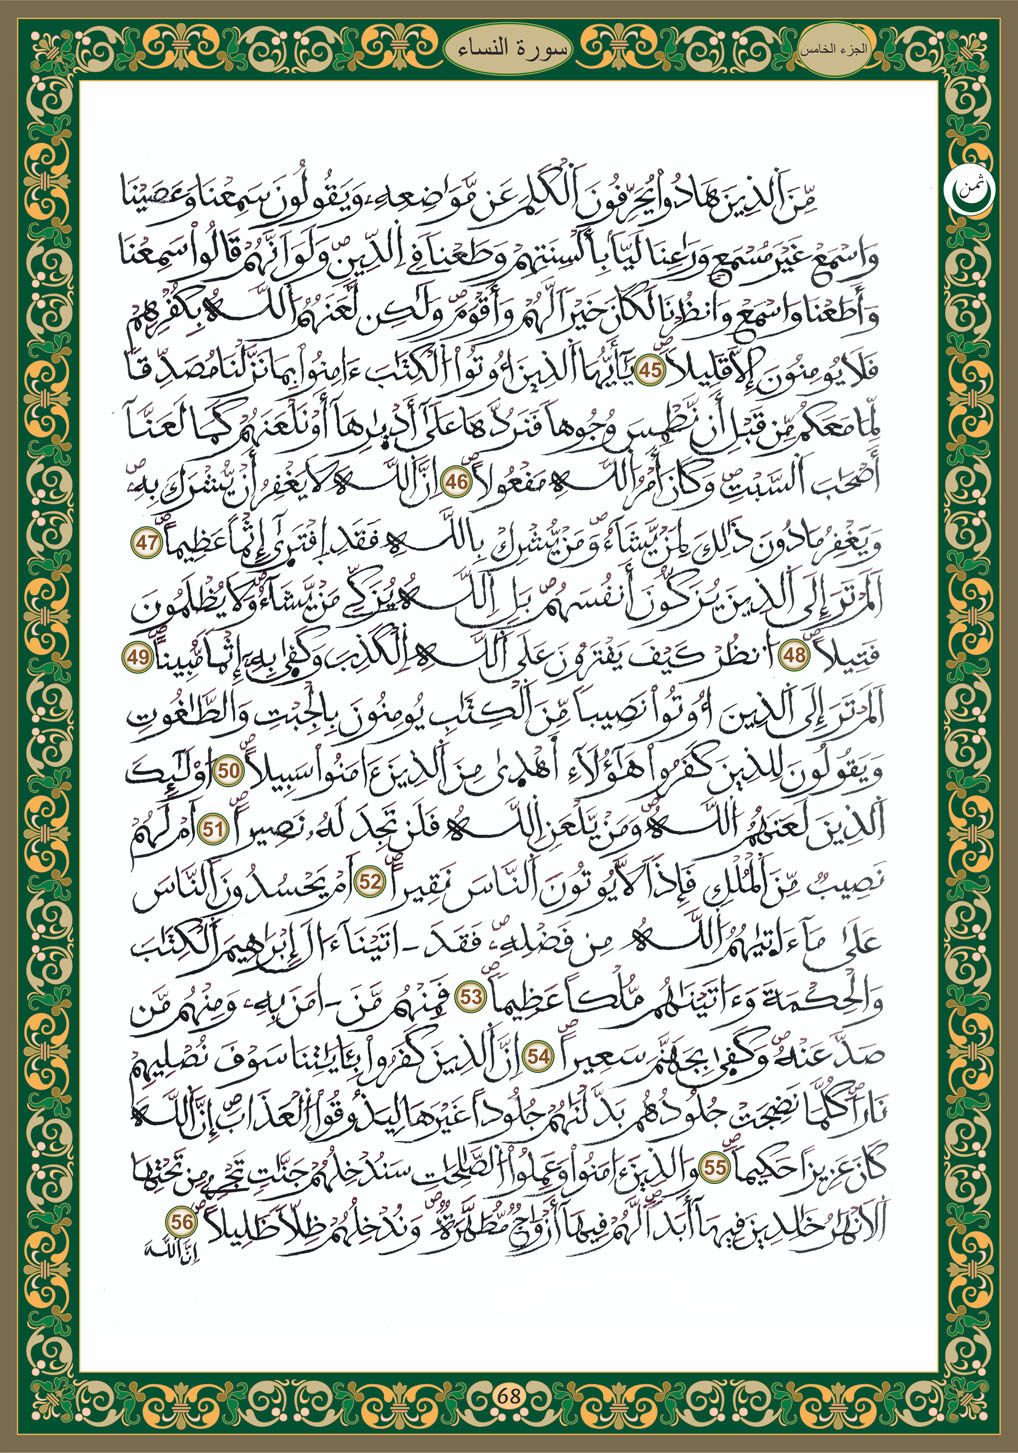 سورة النساء
الجزء الخامس
ثمن
مِّنَ اَلذِينَ هَادُواْ يُحَرِّفُونَ اَلْكَلِمَ عَن مَّوَاضِعِهِۦ وَيَقُولُونَ سَمِعْنَا وَعَصَيْنَا
وَاسْمَعْ غَيْرَ مُسْمَعٍ وَرَٰعِنَا لَيّاَۢ بِأَلْسِنَتِهِمْ وَطَعْناً فِے اِلدِّينِۖ وَلَوَ اَنَّهُمْ قَالُواْ سَمِعْنَا
وَأَطَعْنَا وَاسْمَعْ وَانظُرْنَا لَكَانَ خَيْراً لَّهُمْ وَأَقْوَمَۖ وَلَٰكِن لَّعَنَهُمُ اُللَّهُ بِكُفْرِهِمْ
فَلَا يُومِنُونَ إِلَّا قَلِيلاًۖ 45 يَٰٓأَيُّهَا اَلذِينَ أُوتُواْ اُلْكِتَٰبَ ءَامِنُواْ بِمَا نَزَّلْنَا مُصَدِّقاً
لِّمَا مَعَكُم مِّن قَبْلِ أَن نَّطْمِسَ وُجُوهاً فَنَرُدَّهَا عَلَىٰٓ أَدْبٰ۪رِهَا أَوْ نَلْعَنَهُمْ كَمَا لَعَنَّآ
أَصْحَٰبَ اَلسَّبْتِۖ وَكَانَ أَمْرُ اُللَّهِ مَفْعُولاًۖ 46 اِنَّ اَللَّهَ لَا يَغْفِرُ أَنْ يُّشْرَكَ بِهِۦۖ
وَيَغْفِرُ مَا دُونَ ذَٰلِكَ لِمَنْ يَّشَآءُۖ وَمَنْ يُّشْرِكْ بِاللَّهِ فَقَدِ اِفْتَر۪ىٰٓ إِثْماً عَظِيماًۖ 47
أَلَمْ تَرَ إِلَى اَلذِينَ يُزَكُّونَ أَنفُسَهُمۖ بَلِ اِللَّهُ يُزَكِّے مَنْ يَّشَآءُۖ وَلَا يُظْلَمُونَ
فَتِيلاًۖ 48 اُنظُرْ كَيْفَ يَفْتَرُونَ عَلَى اَللَّهِ اِلْكَذِبَ وَكَف۪ىٰ بِهِۦٓ إِثْماً مُّبِيناًۖ 49
أَلَمْ تَرَ إِلَى اَلذِينَ أُوتُواْ نَصِيباً مِّنَ اَلْكِتَٰبِ يُومِنُونَ بِالْجِبْتِ وَالطَّٰغُوتِ
وَيَقُولُونَ لِلذِينَ كَفَرُواْ هَٰٓؤُلَآءِ اَ۬هْد۪ىٰ مِنَ اَلذِينَ ءَامَنُواْ سَبِيلاًۖ 50 اُوْلَٰٓئِكَ
اَلذِينَ لَعَنَهُمُ اُللَّهُۖ وَمَنْ يَّلْعَنِ اِللَّهُ فَلَن تَجِدَ لَهُۥ نَصِيراًۖ 51 اَمْ لَهُمْ
نَصِيبٌ مِّنَ اَلْمُلْكِ فَإِذاً لَّا يُوتُونَ اَلنَّاسَ نَقِيراًۖ 52 اَمْ يَحْسُدُونَ اَلنَّاسَ
عَلَىٰ مَآ ءَات۪يٰهُمُ اُللَّهُ مِن فَضْلِهِۦۖ فَقَدَ ـ اتَيْنَآ ءَالَ إِبْرَٰهِيمَ اَلْكِتَٰبَ
وَالْحِكْمَةَ وَءَاتَيْنَٰهُم مُّلْكاً عَظِيماًۖ 53 فَمِنْهُم مَّنَ ـ امَنَ بِهِۦ وَمِنْهُم مَّن
صَدَّ عَنْهُۖ وَكَف۪ىٰ بِجَهَنَّمَ سَعِيراًۖ 54 اِنَّ اَلذِينَ كَفَرُواْ بِـَٔايَٰتِنَا سَوْفَ نُصْلِيهِمْ
نَاراًۖ كُلَّمَا نَضِجَتْ جُلُودُهُم بَدَّلْنَٰهُمْ جُلُوداً غَيْرَهَا لِيَذُوقُواْ اُلْعَذَابَۖ إِنَّ اَللَّهَ
كَانَ عَزِيزاً حَكِيماًۖ 55 وَالذِينَ ءَامَنُواْ وَعَمِلُواْ اُلصَّٰلِحَٰتِ سَنُدْخِلُهُمْ جَنَّٰتٍ تَجْرِے مِن تَحْتِهَا
اَلَانْهَٰرُ خَٰلِدِينَ فِيهَآ أَبَداًۖ لَّهُمْ فِيهَآ أَزْوَٰجٌ مُّطَهَّرَةٌۖ وَنُدْخِلُهُمْ ظِلّاً ظَلِيلاًۖ 56
اِنَّ اَللَّهَ
68